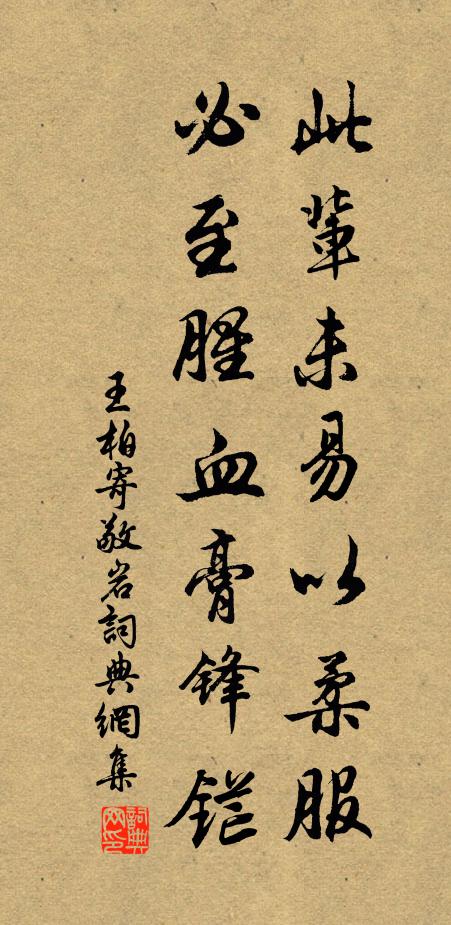 此輩未易以柔服
必至腥血膏鋒鋩
王柏寄敬岩詞典網集
詞典网印